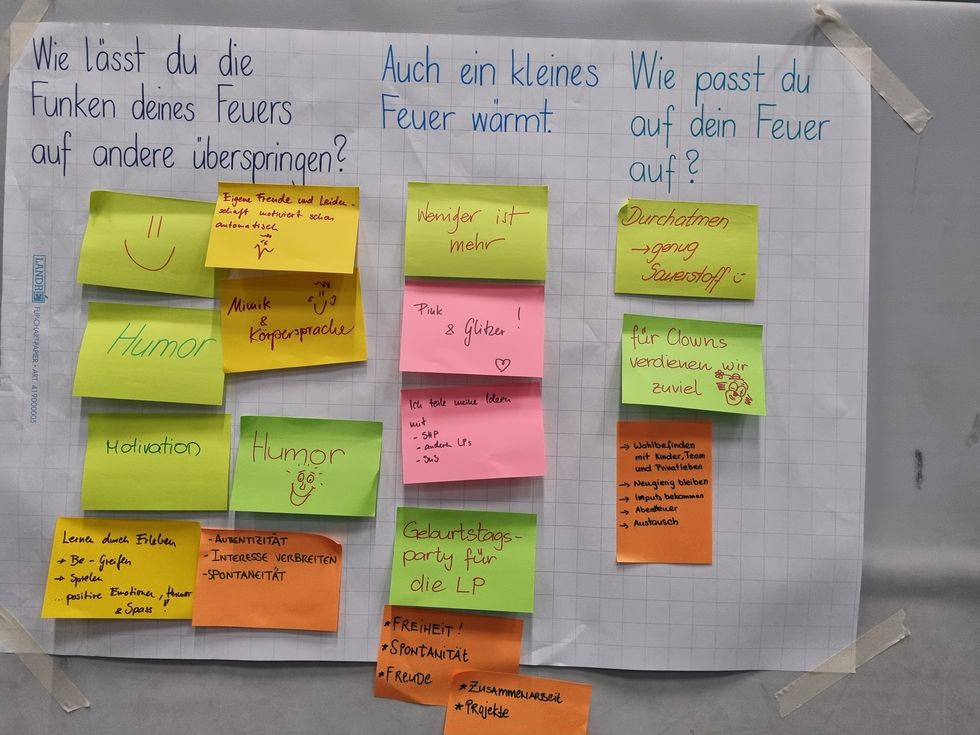 Wie lässt du die
Funken deines Feuers
auf andere überspringen?
Humor
Motivation
Lernen durch Erleben
→ Be-Greifen
→ Spielen
... positive Emotionen, Humor
& Spass!
Eigene Freude und Leiden-
schaft motiviert schon
automatisch
Mimik
&
Körpersprache
Humor
- AUTENTIZITÄT
- INTERESSE VERBREITEN
- SPONTANEITÄT
Auch ein kleines
Feuer wärmt.
Weniger ist
mehr
Pink
& Glitzer!
Ich teile meine Ideen
mit
- SHP
- anderen LPs
- SuS
Geburtstags-
party für
die LP
* FREIHEIT!
* SPONTANITÄT
* FREUDE
* ZUSAMMENARBEIT
* PROJEKTE
Wie passt du
auf dein Feuer
auf?
Durchatmen
→ genug
Sauerstoff
für Clowns
verdienen wir
zuviel
→ Wohlbefinden
mit Kinder, Team
und Privatleben
→ Neugierig bleiben
→ Imputs bekommen
→ Abenteuer
→ Austausch
LANDRÉ FLIPCHARTPAPIER • ART. 419000005